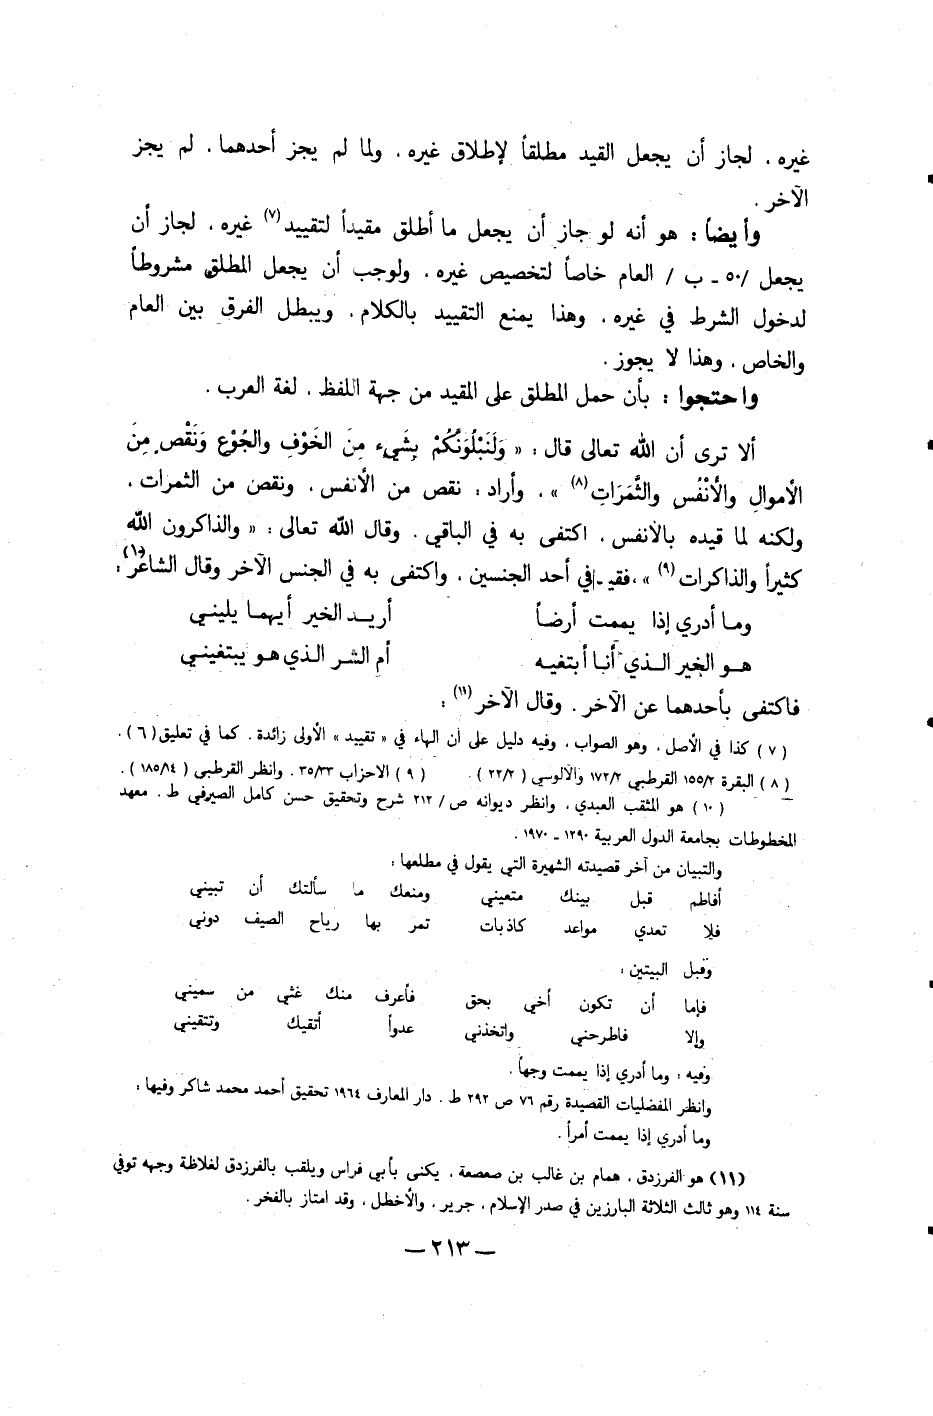 غيره ، لجاز أن يجعل القيد مطلقاً لإطلاق غيره ، ولما لم يجز أحدهما ، لم يجز
الآخر .
وأيضاً : هو أنه لو جاز أن يجعل ما أطلق مقيداً لتقييد(٧) غيره ، لجاز أن
يجعل /٥٠ ـ ب / العام خاصاً لتخصيص غيره ، ولوجب أن يجعل المطلق مشروطاً
لدخول الشرط في غيره ، وهذا يمنع التقييد بالكلام ، ويبطل الفرق بين العام
والخاص ، وهذا لا يجوز .
واحتجوا : بأن حمل المطلق على المقيد من جهة اللفظ ، لغة العرب .
ألا ترى أن الله تعالى قال : « وَلَنَبْلُوَنَّكُمْ بِشَيْءٍ مِنَ الخَوْفِ والجُوْعِ وَنَقْصٍ مِنَ
الأموالِ والأنْفُسِ والثَّمَرَاتِ(٨) » ، وأراد : نقص من الأنفس ، ونقص من الثمرات ،
ولكنه لما قيده بالأنفس ، اكتفى به في الباقي . وقال الله تعالى : « والذاكرون الله
كثيراً والذاكرات(٩) » ، فقيد في أحد الجنسين ، واكتفى به في الجنس الآخر وقال الشاعر(١٠) :
وما أدري إذا يممت أرضاً أريد الخير أيهما يليني
هو الخير الذي أنا أبتغيه أم الشر الذي هو يبتغيني
فاكتفى بأحدهما عن الآخر . وقال الآخر(١١) :
(٧) كذا في الأصل ، وهو الصواب ، وفيه دليل على أن الهاء في « تقييد » الأولى زائدة . كما في تعليق (٦) .
(٨) البقرة ١٥٥/٢ القرطبي ١٧٢/٢ والآلوسي ( ٢٢/٢ ) . (٩) الاحزاب ٣٥/٣٣ . وانظر القرطبي ( ١٨٥/١٤ ) .
(١٠) هو المثقب العبدي ، وانظر ديوانه ص / ٢١٢ شرح وتحقيق حسن كامل الصيرفي ط . معهد
المخطوطات بجامعة الدول العربية ١٢٩٠ ـ ١٩٧٠ .
والتبيان من آخر قصيدته الشهيرة التي يقول في مطلعها :
أفاطم قبل بينك متعيني ومنعك ما سألتك أن تبيني
فلا تعدي مواعد كاذبات تمر بها رياح الصيف دوني
وقبل البيتين :
فإما أن تكون أخي بحق فأعرف منك غثي من سميني
وإلا فاطرحني واتخذني عدواً أتقيك وتتقيني
وفيه : وما أدري إذا يممت وجهاً .
وانظر المفضليات القصيدة رقم ٧٦ ص ٢٩٢ ط . دار المعارف ١٩٦٤ تحقيق أحمد محمد شاكر وفيها :
وما أدري إذا يممت أمراً .
(١١) هو الفرزدق ، همام بن غالب بن صعصعة ، يكنى بأبي فراس ويلقب بالفرزدق لغلاظة وجهه توفي
سنة ١١٤ وهو ثالث الثلاثة البارزين في صدر الإسلام ، جرير ، والأخطل ، وقد امتاز بالفخر .
— ٢١٣ —